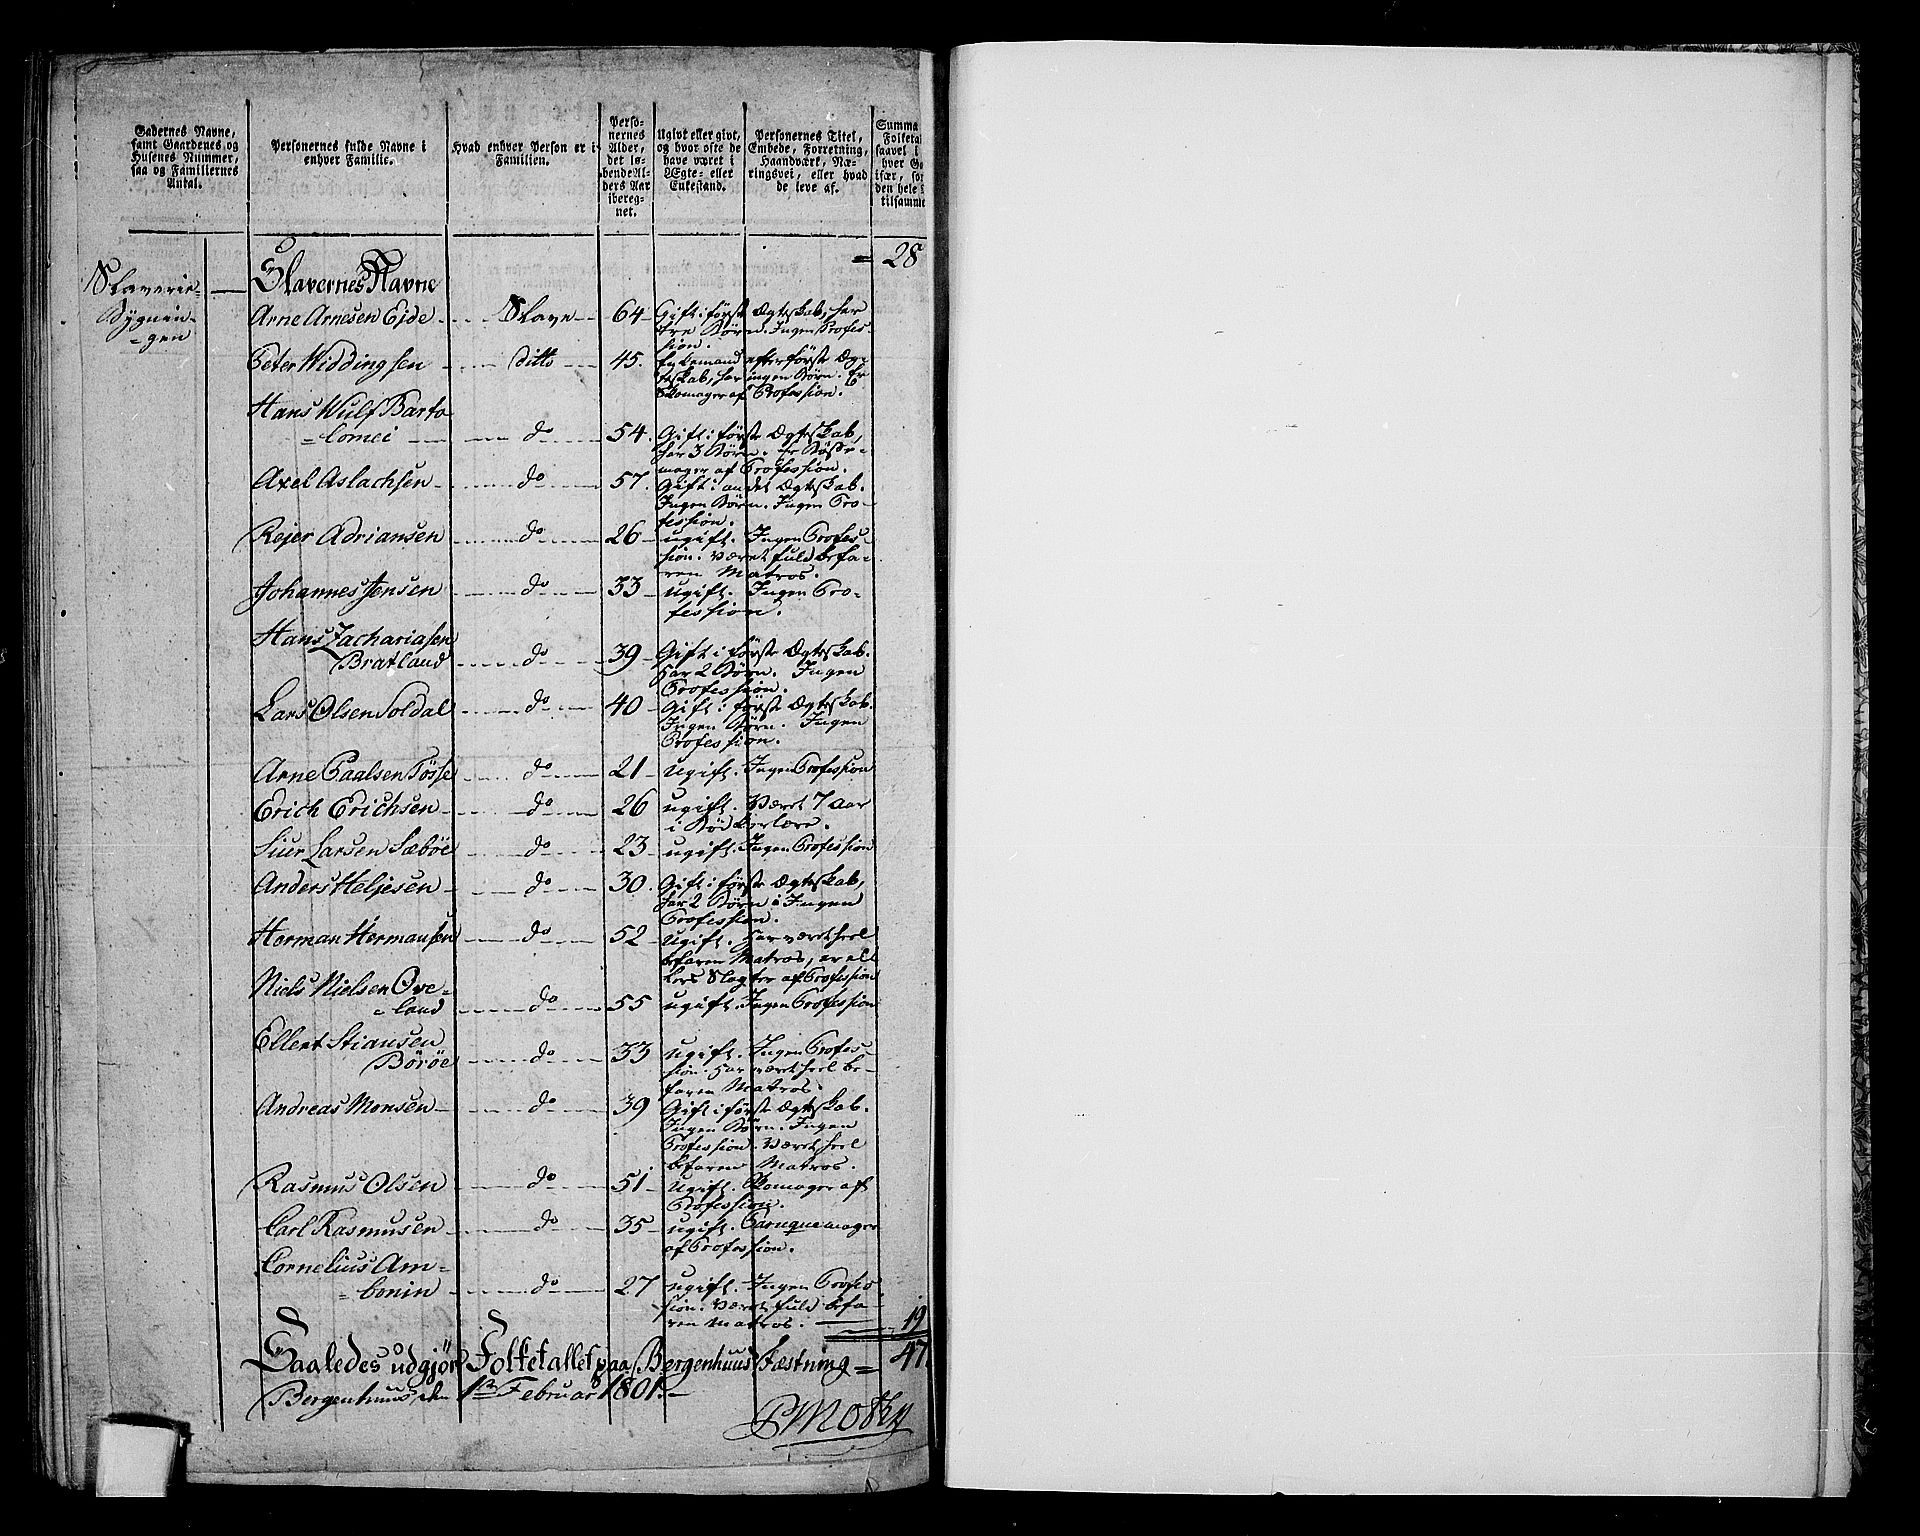 Gadernes Navne, samt Gaardenes og Husenes Nummer, saa og Familiernes Antal.
Personernes fulde Navne i enhver Familie.
Hvad enhver Person er i Familien.
Personernes Alder, det løbende Alders Aar iberegnet.
Ugivt eller givt, og hvor ofte de have været i Ægte- eller Enkestand.
Personernes Titel, Embede, Forretning, Haandværk, Næringsvei, eller hvad de leve af.
Summa Folketa saavel i hver Ga især, so den hele tilsamme
= 28
Slaverie= Bygnin- =gen
Slavernes Navne
Arne Arnesen Ejde Slave 64 Gift i første Ægteskab, har
tre Børn. Ingen Profes-
sion.
Peter Widdingsen ditto 45. Enkemand efter første Æg-
teskab, har ingen Børn. Er
Skomager af Profession.
Hans Wulf Barto
=lomei do 54. Gift i første Ægteskab,
har 3 Børn. Er Bøsse-
mager af Profession.
Axel Aslachsen do 57. Gift i andet Ægteskab.
Ingen Børn. Ingen Pro-
fession.
Rejer Adriansen do 26 ugift. Ingen Profes-
sion. Været fuld befa-
ren Matros.
Johannes Jensen do 33 ugift. Ingen Pro-
fession.
Hans Zachariasen
Bratland do 39 Gift i første Ægteskab.
har 2 Børn. Ingen
Profession.
Lars Olsen Soldal do 40 Gift i første Ægteskab.
Ingen Børn. Ingen
Profession.
Arne Paalsen Tösse do 21 ugift. Ingen Profession
Erich Erichsen do 26 ugift. Været 7 Aar
i Bödkerlære.
Siur Larsen Sæböe do 23 ugift. Ingen Profession
Anders Heljesen do 30. Gift i første Ægteskab,
har 2 Børn. Ingen
Profession.
Herman Hermansen do 52 ugift. Har været heel
befaren Matros, er ell
lers Slagter af Profession
Niels Nielsen Ove=
=land do 55 ugift. Ingen Profession
Ellert Stiansen
Böröe do 33 ugift. Ingen Profes-
sion. Har været heel be-
faren Matros.
Andreas Monsen do 39 Gift i første Ægteskab.
Ingen Børn. Ingen
Profession. Været heel
befaren Matros.
Rasmus Olsen do 51 ugift. Skomager af
Profession.
Carl Rasmusen do 35 ugift. Paruquemager
af Profession.
Cornelius Am=
=bonin do 27 ugift. Ingen Profes
sion. Været fuld befa-
ren Matros. 19
Saaledes udgjør Folketallet paa Bergenhuus Fæstning = 47.
Bergenhuus den 1te Februar 1801.